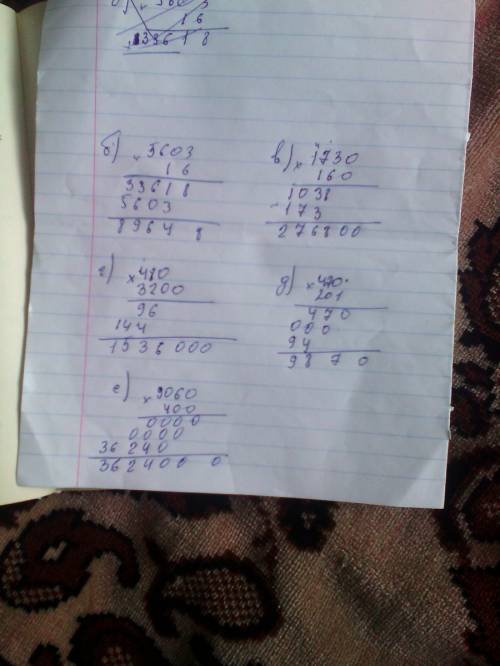 16
33618
б) × 5603
16
33618
5603
89648
в) × 1730
160
1038
173
276800
г) × 480
3200
96
144
1536000
д) × 470
201
470
000
94
9870
е) × 9060
400
0000
0000
36240
3624000